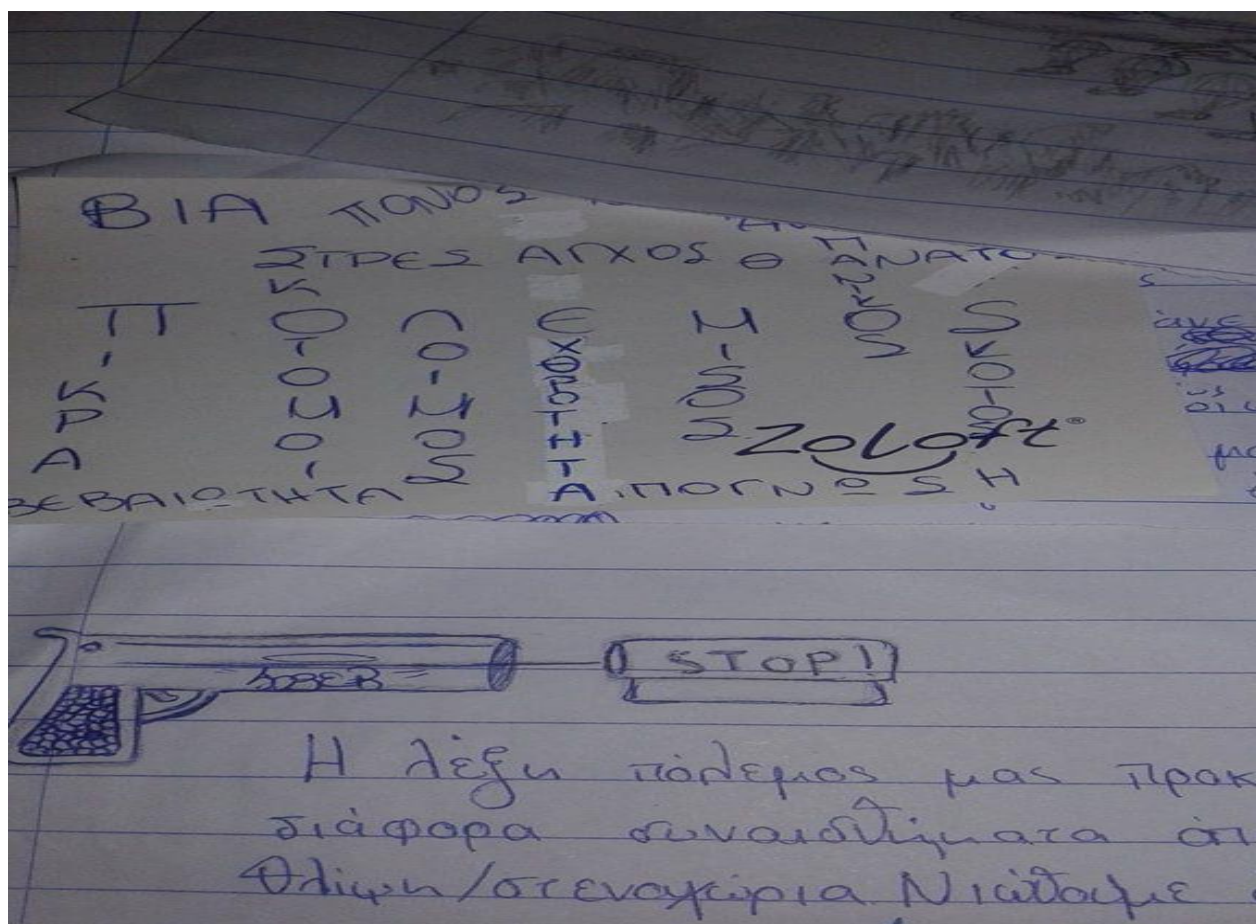 ΒΙΑ ΠΟΝΟΣ
ΣΤΡΕΣ ΑΓΧΟΣ ΘΑΝΑΤΟ
ΠΟΛΕΜΟS
ΠΙΚΡΑ
ΣΚΟΤΟΜΟΙ
ΛΟΙΜΟΣ
ΜΙΣΟΣ
ΠΑΝΙΚΟΣ
Zoloft®
ΒΕΒΑΙΩΤΗΤΑ ΑΠΟΓΝΩSΗ
STOP!
Η λέξη πόλεμος μας προκ
διάφορα συναισθήματα ό
θλίψη/στεναχώρια Νιώθουμε